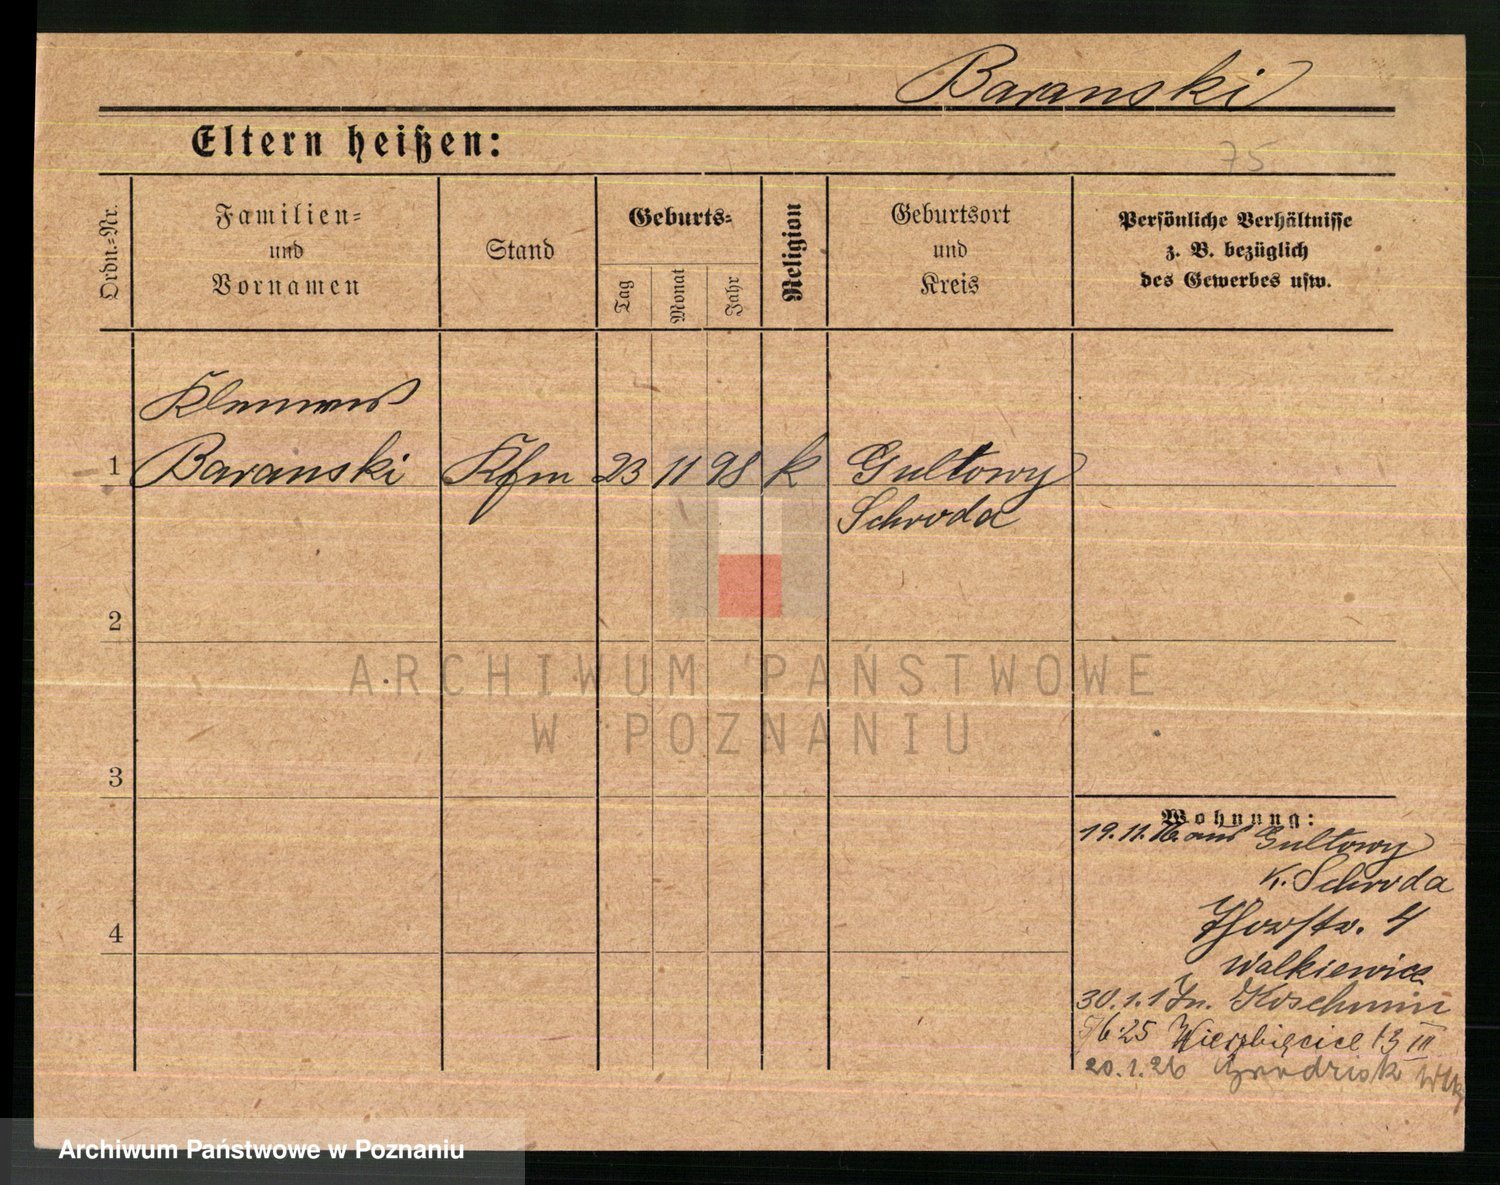 Baranski
Eltern heißen:
75
Ordn.-Nr.
Familien-
und
Vornamen
Stand
Geburts-
Tag
Monat
Jahr
Religion
Geburtsort
und
Kreis
Persönliche Verhältnisse
z. B. bezüglich
des Gewerbes usw.
Klemens
1 Baranski Kfm 23 11 98 k Gultowy
Schroda
2
ARCHIWUM PAŃSTWOWE
W POZNANIU
3
Wohnung:
19.11.16. aus Gultowy
K. Schroda
Thorstr. 4
4
Walkiewicz
30.1.17 n. Koschmin
6.25 Wierzbięcice 13 III
20.1.26 Grodzisk Wlkp
Archiwum Państwowe w Poznaniu